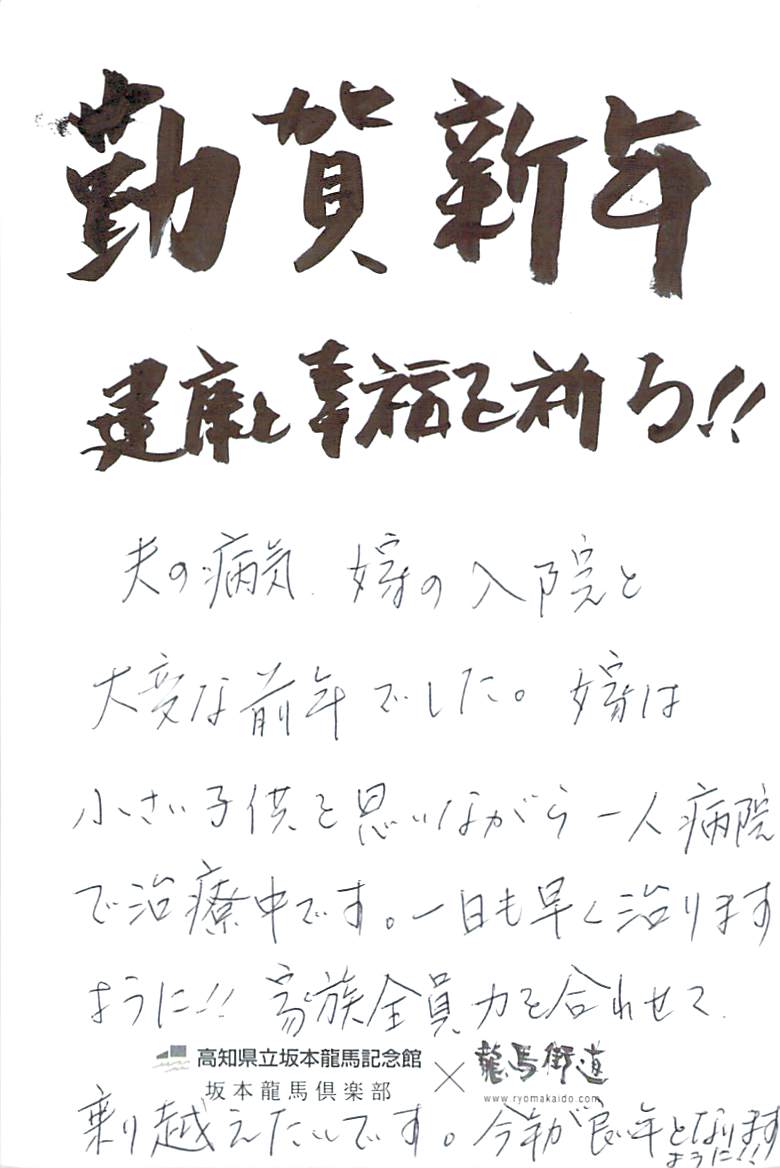 勤賀新年
健康と幸福を祈る!!
夫の病気、嫁の入院と
大変な前年でした。嫁は
小さい子供を思いながら一人病院
で治療中です。一日も早く治ります
ように!! 家族全員力を合わせて、
高知県立坂本龍馬記念館
坂本龍馬倶楽部
×
龍馬街道
www.ryomakaido.com
乗り越えたいです。今年が良い年となります
ように!!